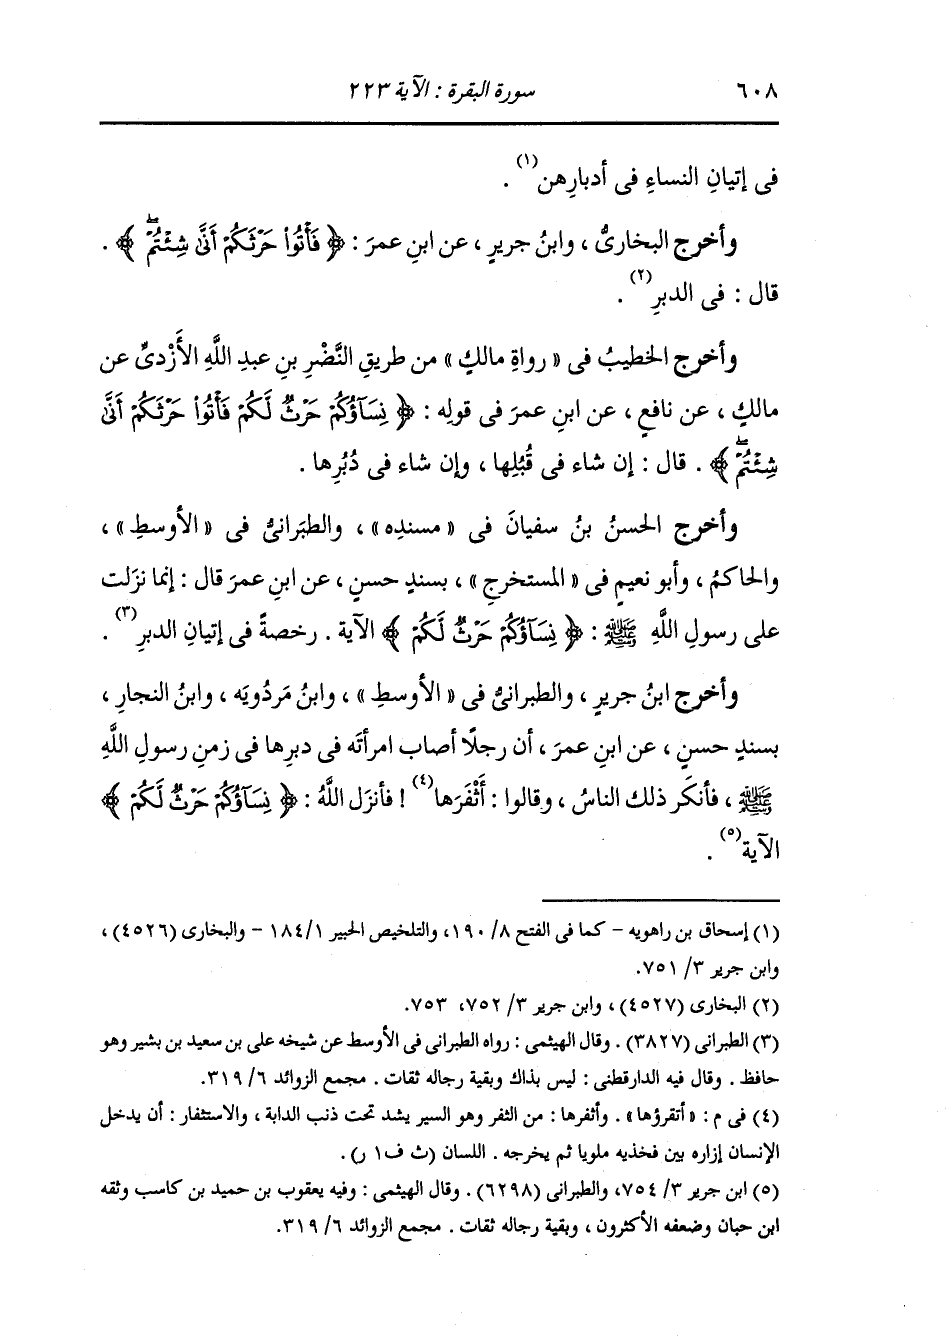 ٦٠٨ سورة البقرة : الآية ٢٢٣
فى إتيانِ النساءِ فى أدبارِهن(١) .
وأخرج البخارىُّ ، وابنُ جريرٍ ، عن ابنِ عمرَ : ﴿ فَأْتُوا۟ حَرْثَكُمْ أَنَّىٰ شِئْتُمْ ۖ ﴾ .
قال : فى الدبرِ(٢) .
وأخرج الخطيبُ فى « رواةِ مالكٍ » من طريقِ النَّضْرِ بنِ عبدِ اللَّهِ الأَزْدىِّ عن
مالكٍ ، عن نافعٍ ، عن ابنِ عمرَ فى قولِه : ﴿ نِسَآؤُكُمْ حَرْثٌ لَّكُمْ فَأْتُوا۟ حَرْثَكُمْ أَنَّىٰ
شِئْتُمْ ۖ ﴾ . قال : إن شاء فى قُبُلِها ، وإن شاء فى دُبُرِها .
وأخرج الحسنُ بنُ سفيانَ فى « مسندِه » ، والطبَرانىُّ فى « الأوسطِ » ،
والحاكمُ ، وأبو نعيمٍ فى « المستخرجِ » ، بسندٍ حسنٍ ، عن ابنِ عمرَ قال : إنما نزَلت
على رسولِ اللَّهِ ﷺ : ﴿ نِسَآؤُكُمْ حَرْثٌ لَّكُمْ ﴾ الآية . رخصةً فى إتيانِ الدبرِ(٣) .
وأخرج ابنُ جريرٍ ، والطبرانىُّ فى « الأوسطِ » ، وابنُ مَردُويَه ، وابنُ النجارِ ،
بسندٍ حسنٍ ، عن ابنِ عمرَ ، أن رجلًا أصاب امرأتَه فى دبرِها فى زمنِ رسولِ اللَّهِ
ﷺ ، فأنكَر ذلك الناسُ ، وقالوا : أَثْفَرَها(٤) ! فأنزَل اللَّهُ : ﴿ نِسَآؤُكُمْ حَرْثٌ لَّكُمْ ﴾
الآية(٥) .
(١) إسحاق بن راهويه - كما فى الفتح ٨/ ١٩٠، والتلخيص الحبير ١/ ١٨٤ - والبخارى (٤٥٢٦) ،
وابن جرير ٣/ ٧٥١.
(٢) البخارى (٤٥٢٧) ، وابن جرير ٣/ ٧٥٢، ٧٥٣.
(٣) الطبرانى (٣٨٢٧) . وقال الهيثمى : رواه الطبرانى فى الأوسط عن شيخه على بن سعيد بن بشير وهو
حافظ . وقال فيه الدارقطنى : ليس بذاك وبقية رجاله ثقات . مجمع الزوائد ٦/ ٣١٩.
(٤) فى م : « أتقرؤها » . وأثفرها : من الثفر وهو السير يشد تحت ذنب الدابة ، والاستثفار : أن يدخل
الإنسان إزاره بين فخذيه ملويا ثم يخرجه . اللسان (ث ف ١ ر) .
(٥) ابن جرير ٣/ ٧٥٤، والطبرانى (٦٢٩٨) . وقال الهيثمى : وفيه يعقوب بن حميد بن كاسب وثقه
ابن حبان وضعفه الأكثرون ، وبقية رجاله ثقات . مجمع الزوائد ٦/ ٣١٩.